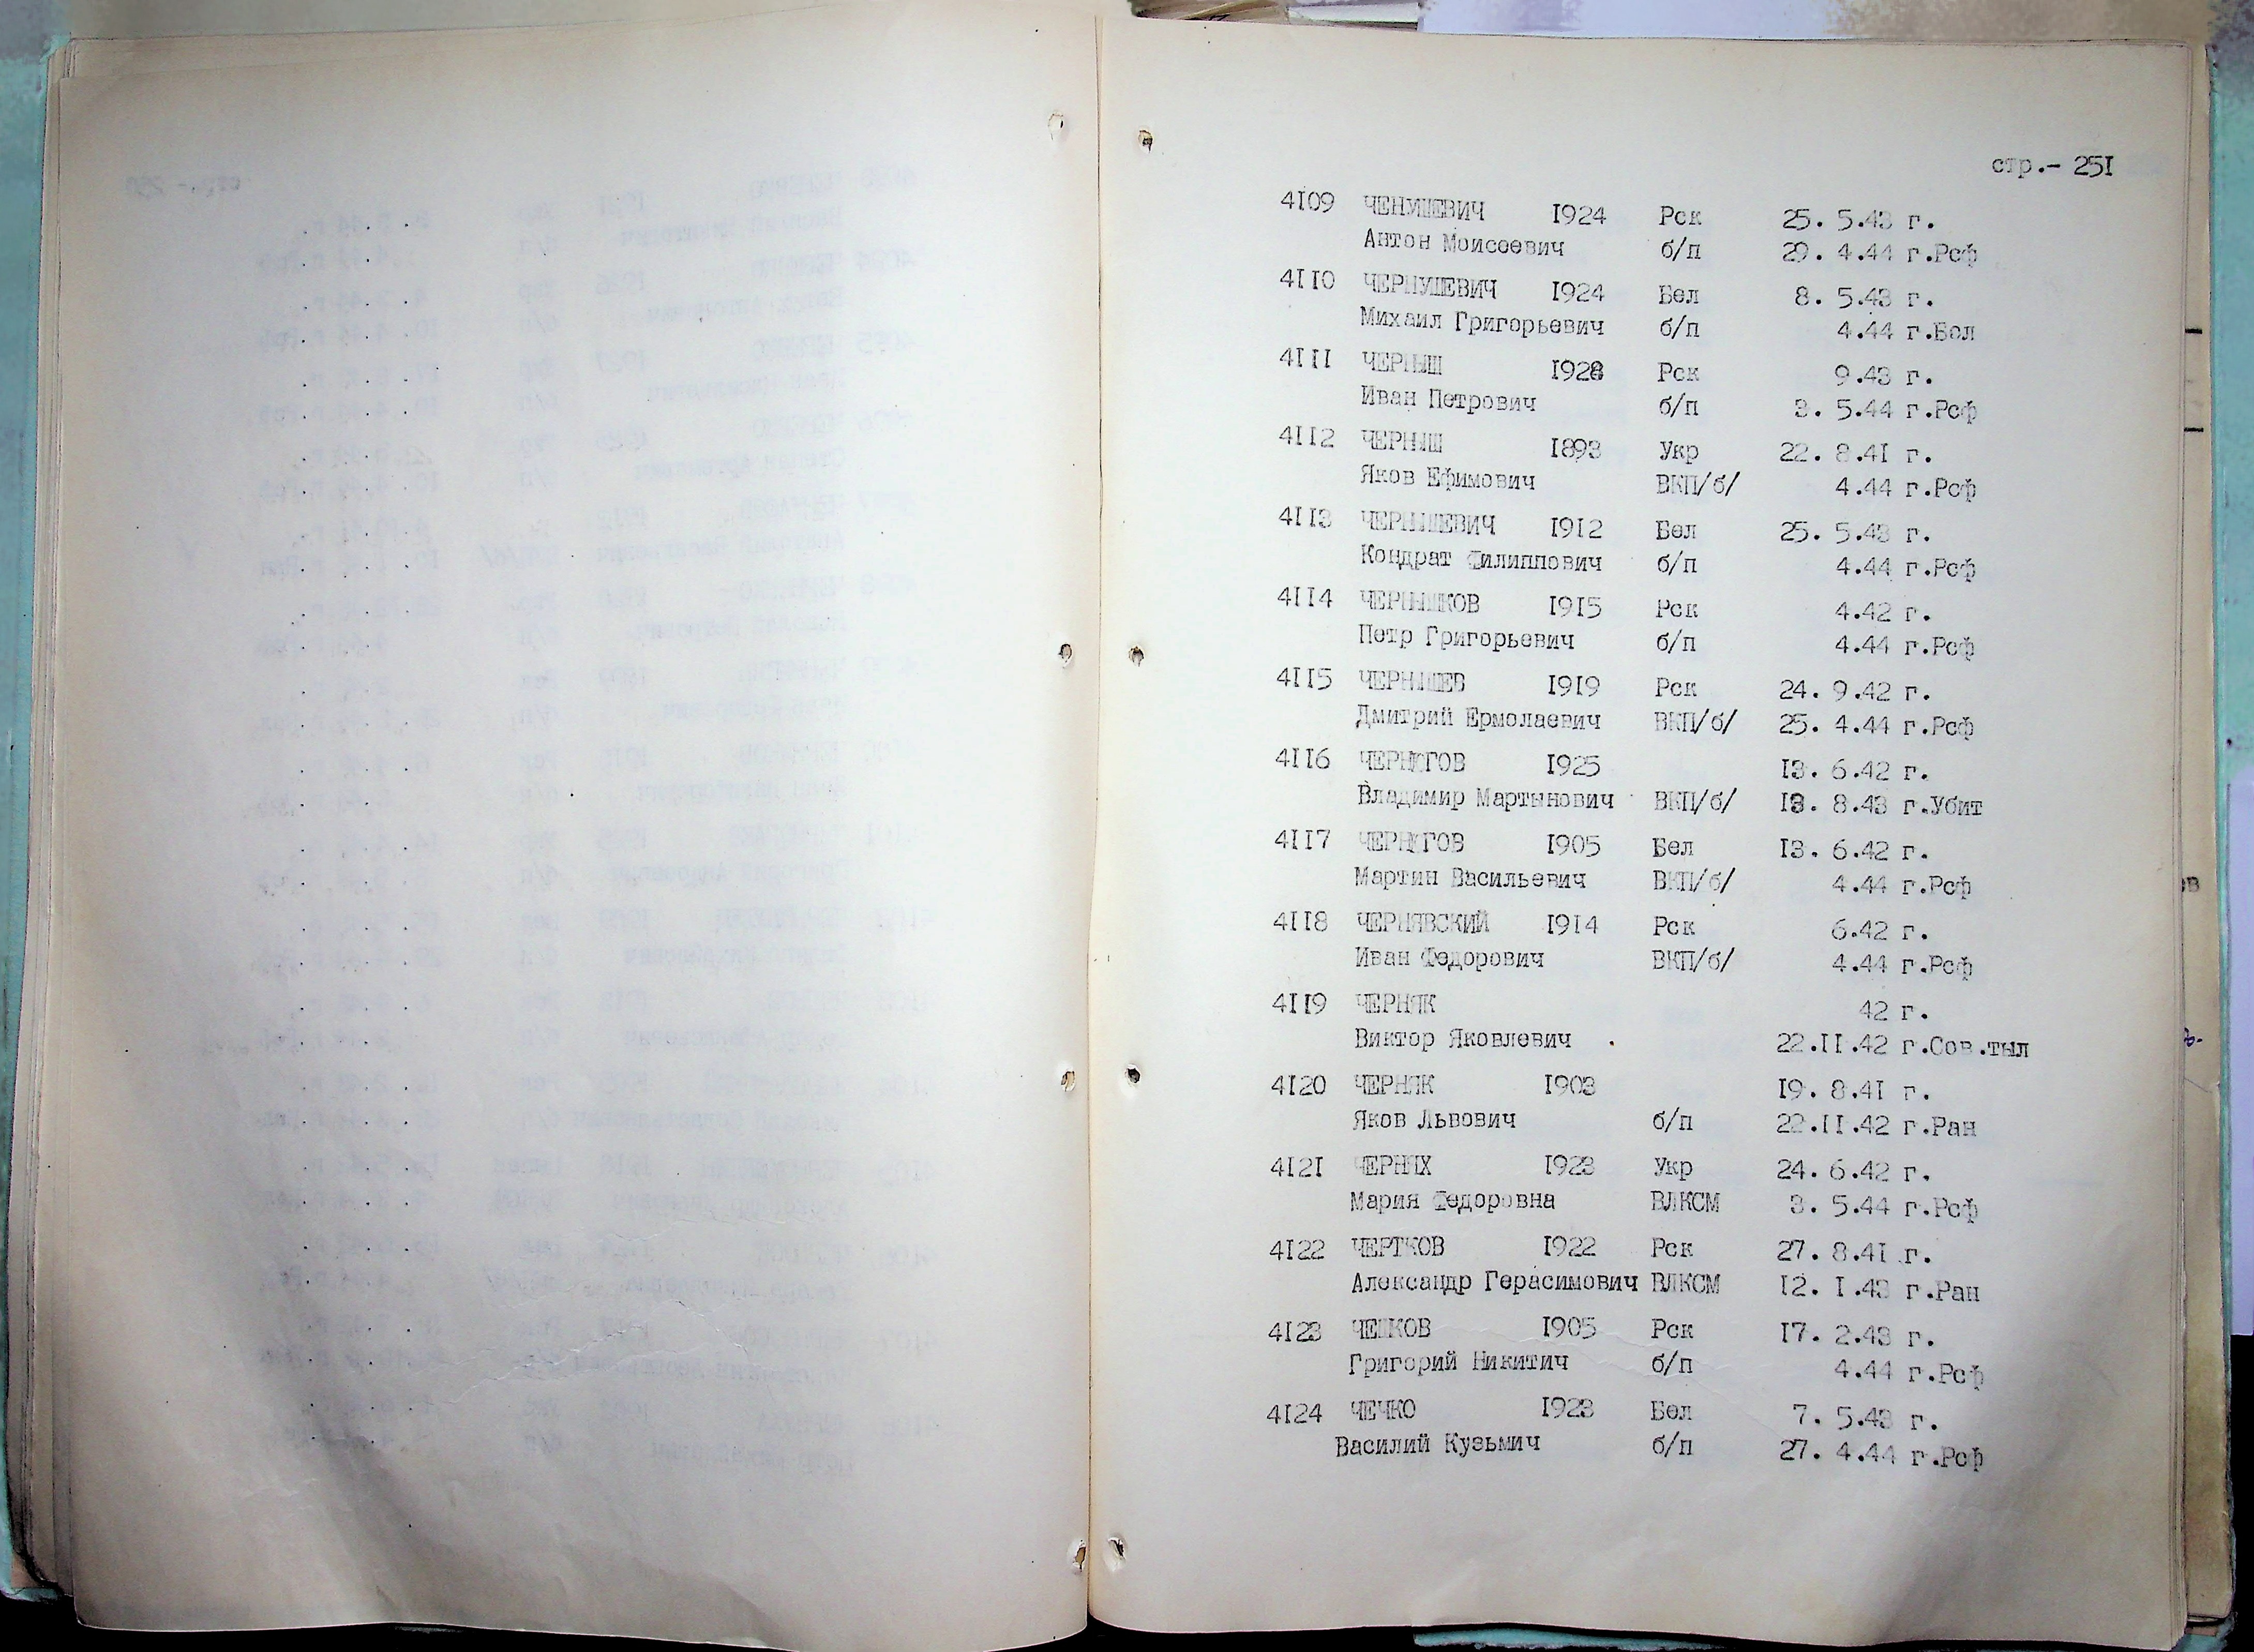 стр.- 25I
4I09 ЧЕНУШЕВИЧ I924 Рск 25. 5.43 г.
Антон Моисеевич б/п 29. 4.44 г.Рсф
4II0 ЧЕРНУШЕВИЧ I924 Бел 8. 5.43 г.
Михаил Григорьевич б/п 4.44 г.Бел
4III ЧЕРНЫШ I928 Рск 9.43 г.
Иван Петрович б/п 3. 5.44 г.Рсф
4II2 ЧЕРНЫШ I893 Укр 22. 8.4I г.
Яков Ефимович ВКП/б/ 4.44 г.Рсф
4II3 ЧЕРНЫШЕВИЧ I9I2 Бел 25. 5.43 г.
Кондрат Филиппович б/п 4.44 г.Рсф
4II4 ЧЕРНЫШКОВ I9I5 Рск 4.42 г.
Петр Григорьевич б/п 4.44 г.Рсф
4II5 ЧЕРНЫШЕВ I9I9 Рск 24. 9.42 г.
Дмитрий Ермолаевич ВКП/б/ 25. 4.44 г.Рсф
4II6 I925 I3. 6.42 г.
Владимир Мартынович ВКП/б/ I3. 8.43 г.Убит
4II7 I905 Бел I3. 6.42 г.
Мартин Васильевич ВКП/б/ 4.44 г.Рсф
4II8 ЧЕРНЯВСКИЙ I9I4 Рск 6.42 г.
Иван Федорович ВКП/б/ 4.44 г.Рсф
4II9 ЧЕРНЯК 42 г.
Виктор Яковлевич 22.II.42 г.Сов.тыл
4I20 ЧЕРНЯК I903 I9. 8.4I г.
Яков Львович б/п 22.II.42 г.Ран
4I2I ЧЕРНЫХ I923 Укр 24. 6.42 г.
Мария Федоровна ВЛКСМ 3. 5.44 г.Рсф
4I22 ЧЕРТКОВ I922 Рск 27. 8.4I г.
Александр Герасимович ВЛКСМ I2. I.43 г.Ран
4I23 I905 Рск I7. 2.43 г.
Григорий Никитич б/п 4.44 г.Рсф
4I24 ЧЕЧКО I923 Бел 7. 5.43 г.
Василий Кузьмич б/п 27. 4.44 г.Рсф